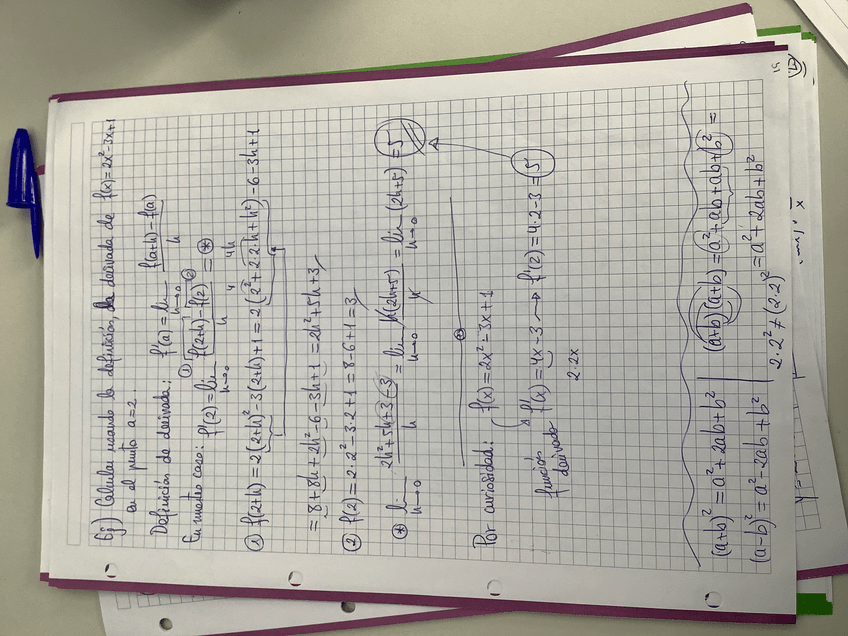 Ej) Calcular usando la definición, la derivada de f(x)=2x²-3x+1
en el punto a=2.
Definición de derivada: f'(a) = lim h→0 (f(a+h)-f(a))/h
En nuestro caso: f'(2) = lim h→0 (① f(2+h) - ② f(2))/h = ⊛
① f(2+h) = 2(2+h)² - 3(2+h)+1 = 2(2²+2·2·h+h²) - 6-3h+1
4 4h
= 8+8h+2h²-6-3h+1 = 2h²+5h+3
② f(2) = 2·2²-3·2+1 = 8-6+1 = 3
⊛ lim h→0 (2h²+5h+3-3)/h = lim h→0 h(2h+5)/h = lim h→0 (2h+5) = 5
Por curiosidad: f(x) = 2x²-3x+1
función derivada f'(x) = 4x-3 → f'(2) = 4·2-3 = 5
2·2x
(a+b)² = a²+2ab+b² | (a+b)(a+b) = a²+ab+ab+b² =
(a-b)² = a²-2ab+b² | = a²+2ab+b²
2·2² ≠ (2·2)²